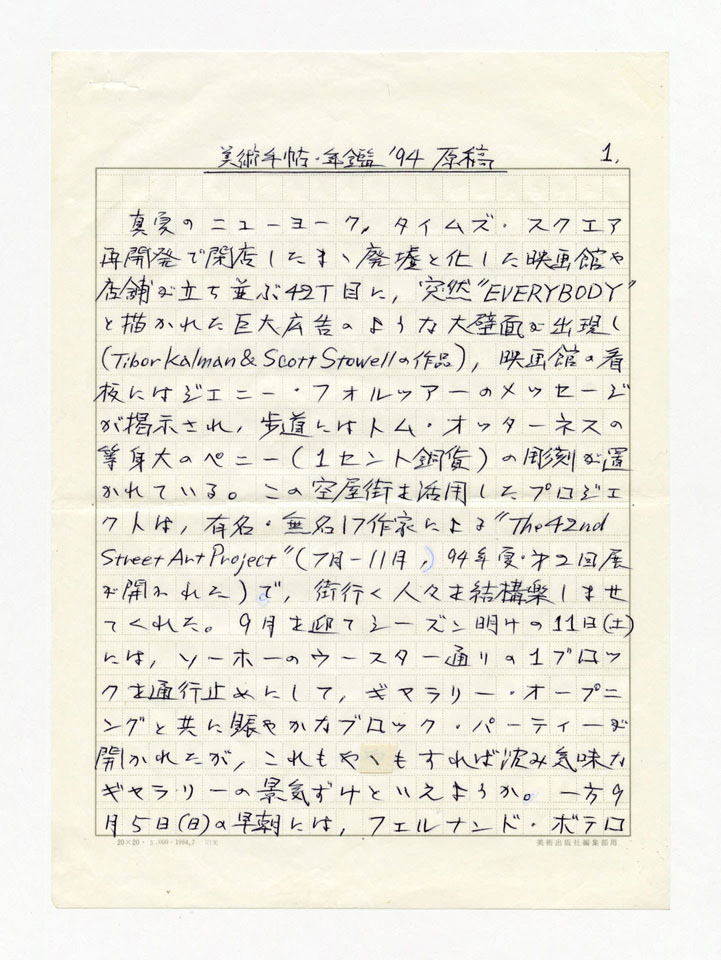 美術手帖・年鑑 '94 原稿 1.
真夏のニューヨーク。タイムズ・スクエア
再開発で閉店したまゝ廃墟と化した映画館や
店舗が立ち並ぶ42丁目に、突然“EVERYBODY”
と描かれた巨大広告のような大壁面が出現し
(Tibor Kalman & Scott Stowellの作品)、映画館の看
板にはジェニー・フォルツアーのメッセージ
が掲示され、歩道にはトム・オッターネスの
等身大のペニー(1セント銅貨)の彫刻が置
かれている。この空屋街を活用したプロジェ
クトは、有名・無名17作家による“The 42nd
Street Art Project”(7月−11月、94年夏・才2回展
が開かれた)で、街行く人々を結構楽しませ
てくれた。9月を迎てシーズン明けの11日(土)
には、ソーホーのウースター通りの1ブロッ
クを通行止めにして、ギャラリー・オープニ
ングと共に賑やかなブロック・パーティーが
開かれたが、これもやゝもすれば沈み気味な
ギャラリーの景気ずけといえようか。一方9
月5日(日)の早朝には、フェルナンド・ボテロ
20×20・5.000・1994,7
美術出版社編集部用